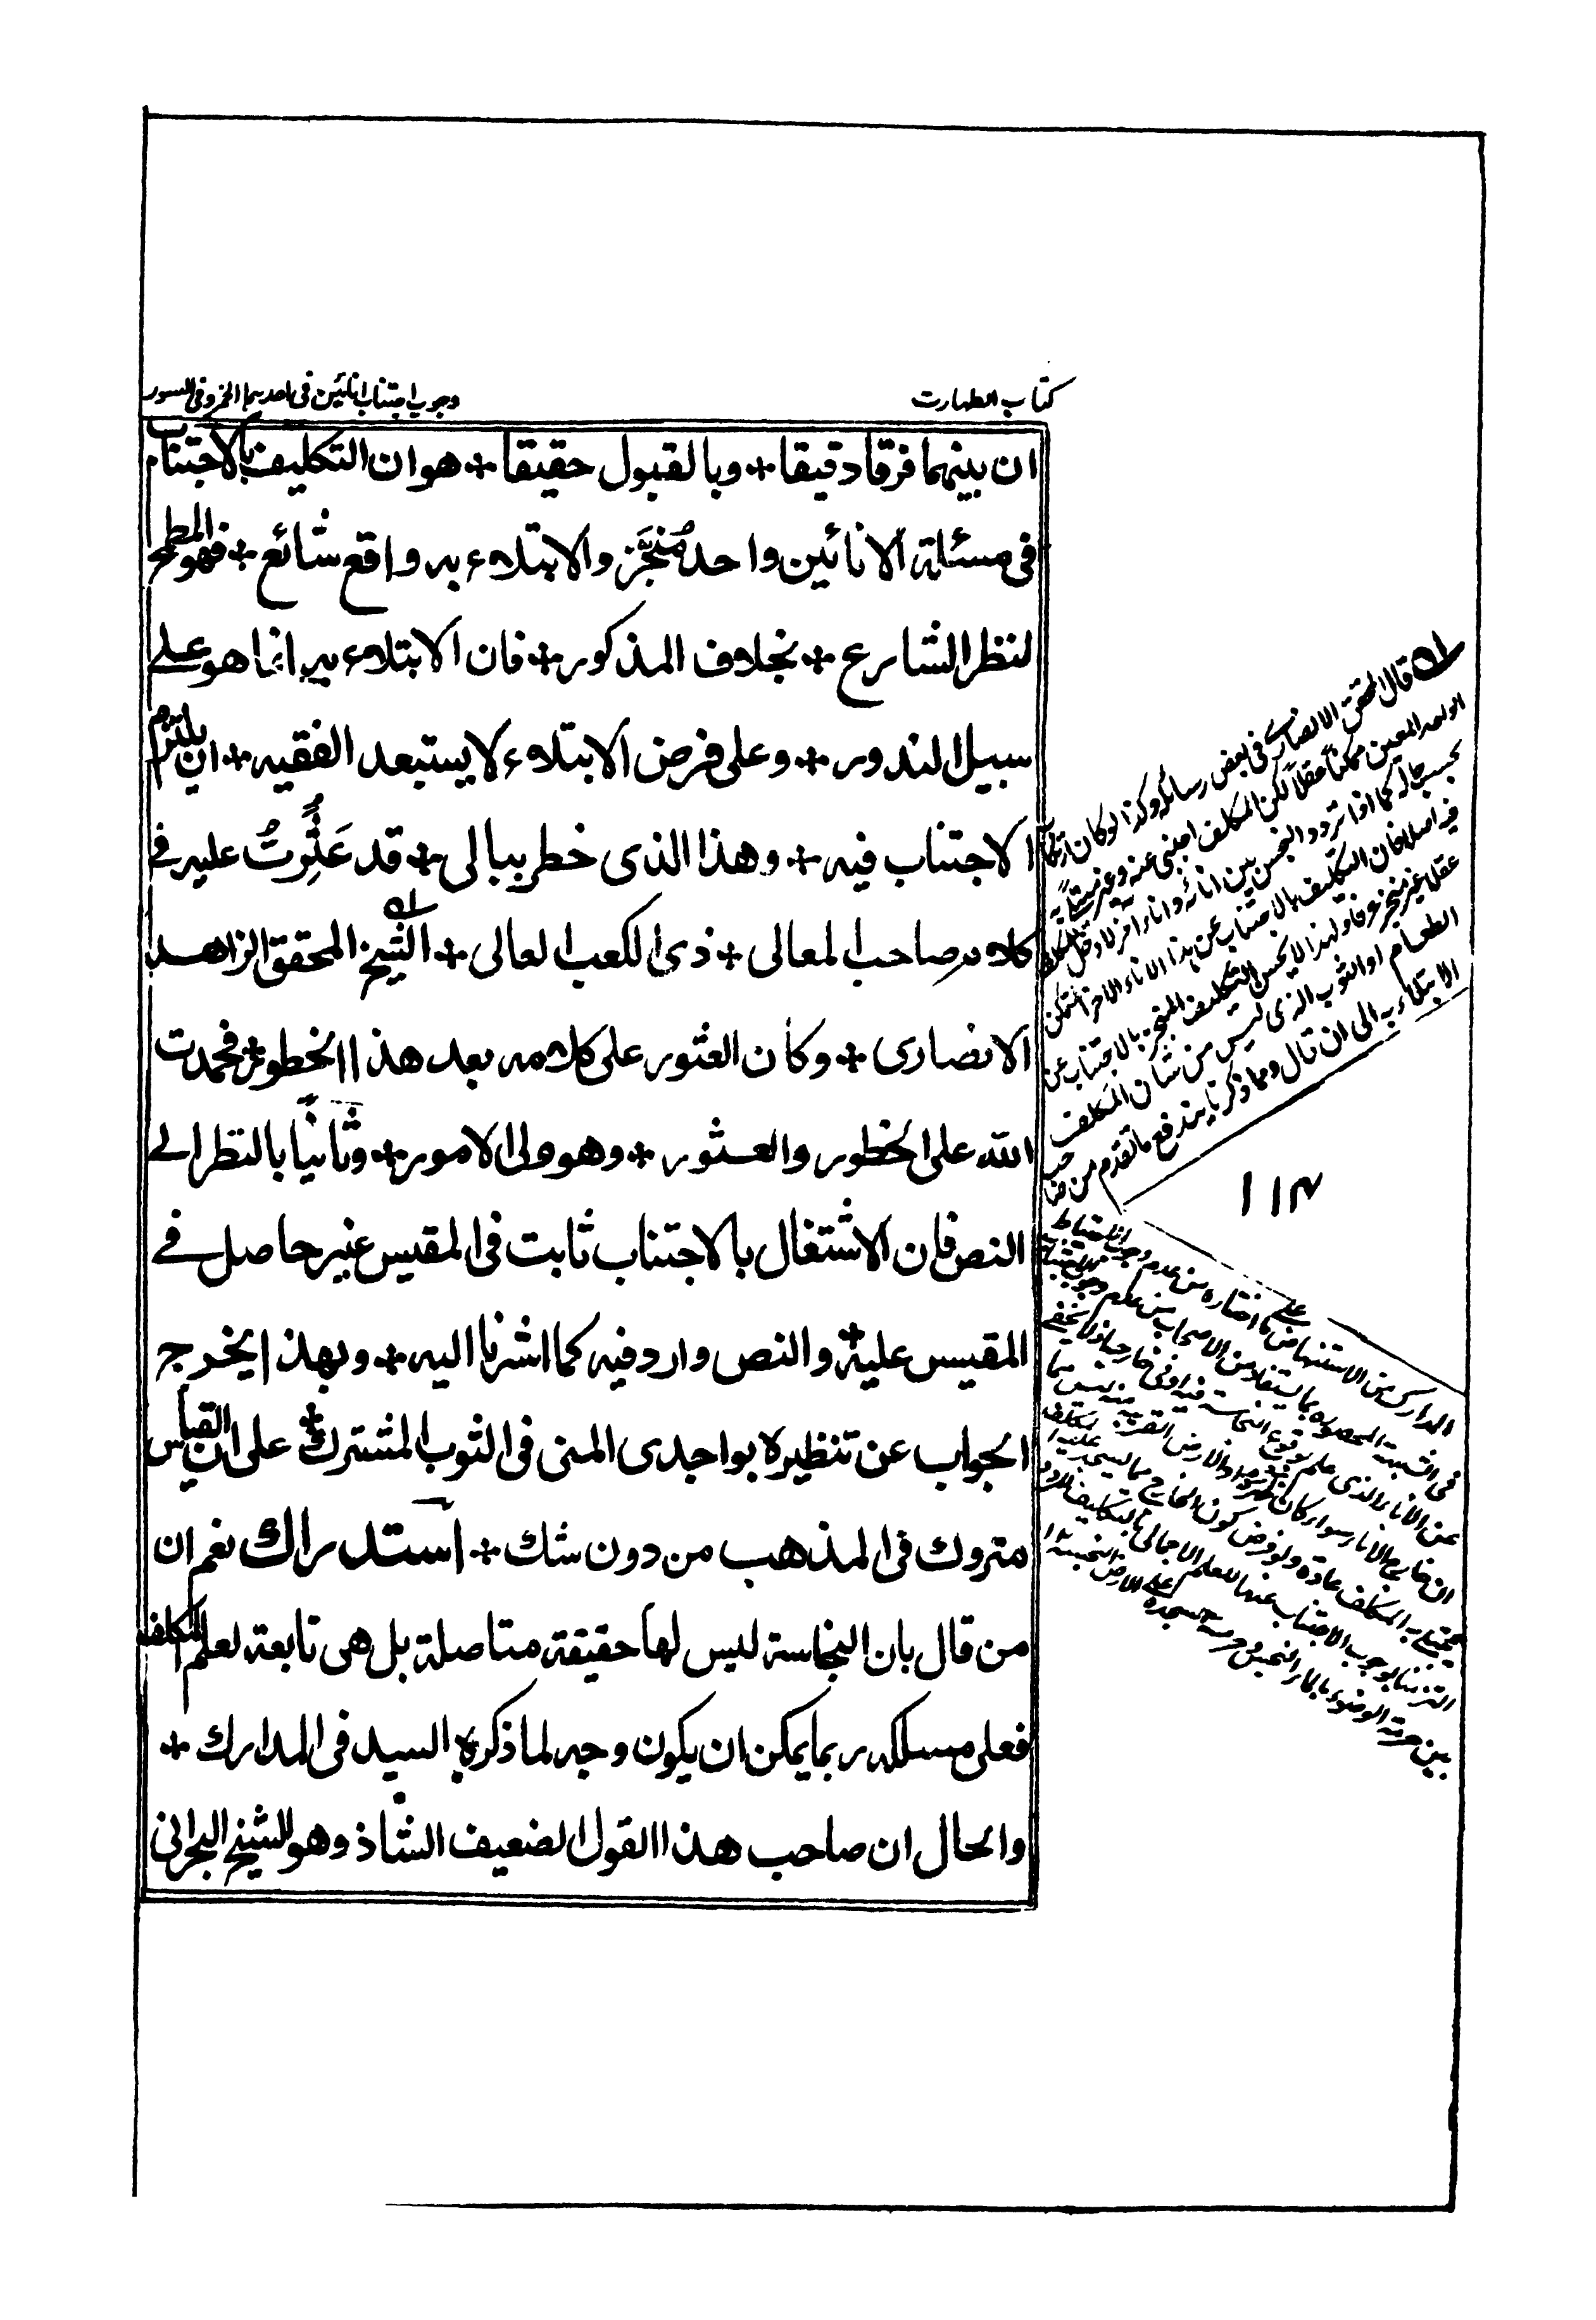 كتاب الطهارت
وجوب اجتناب انائين فى احدهما الخمر وفى السور
ان بينهما فرقا دقيقا + وبالقبول حقيقا + هو ان التكليف بالاجتناب
فى مسئلة الانائين واحد منجَّز والابتلاء به واقع شائع + فهو المطمح
لنظر الشارع + بخلاف المذكور + فان الابتلاء به انما هو على
سبيل الندور + وعلى فرض الابتلاء لا يستبعد الفقيه + ان يلتزم
الاجتناب فيه + وهذا الذى خطر ببالى + قد عَثِرتُ عليه فى
كلام صاحب المعالى + ذى الكعب العالى + الشيخ المحقق الزاهد
الانصارى + وكان العثور على كلامه بعد هذا الخطور + فحمدت
الله على الخطور والعثور + وهو ولى الامور + وثانيًا بالنظر الى
النص فان الاشتغال بالاجتناب ثابت فى المقيس غير حاصل فى
المقيس عليه + والنص وارد فيه كما اشرنا اليه + وبهذا يخرج
الجواب عن تنظيره بواجدى المنى فى الثوب المشترك + على ان القياس
متروك فى المذهب من دون شك + استدراك نعم ان
من قال بان النجاسة ليس لها حقيقة متاصلة بل هى تابعة لعلم المكلف
فعلى مسلكه ربما يمكن ان يكون وجه لما ذكره السيد فى المدارك +
والحال ان صاحب هذا القول الضعيف الشاذ وهو الشيخ البحرانى
قال المحقق الانصارى فى بعض رسائله وكذا لو كان ارتكاب
الواحد المعين ممكنا عقلا لكن المكلف اجنبى عنه وغير مبتلى به
بحسب حاله كما اذا تردد النجس بين انائه واناء اخر لا دخل للمكلف
فيه اصلا فان التكليف بالاجتناب عن هذا الاناء الاخر المتمكن
عقلا غير منجز عرفا ولهذا لا يحسن التكليف المنجز بالاجتناب عن
الطعام او الثوب الذى ليس من شان المكلف
الابتلاء به الى ان قال ومما ذكرنا يندفع ما تقدم من صاحب
١١٤
المدارك من الاستنهاض على ما اختاره من عدم وجوب الاحتياط
فى الشبهة المحصورة بما يستفاد من الاصحاب من عدم وجوب الاجتناب
عن الاناء الذى علم بوقوع النجاسة فيه او فى خارجه اذ لا يخفى
ان خارج الاناء سواء كان ظهره او الارض القريبة منه ليس مما
يبتلى به المكلف عادة ولو فرض كون الخارج مما يسجد عليه المكلف
التزمنا بوجوب الاجتناب عنهما للعلم الاجمالى بالتكليف المردد
بين حرمة الوضوء بالماء النجس وحرمة السجدة على الارض النجسة ١٢